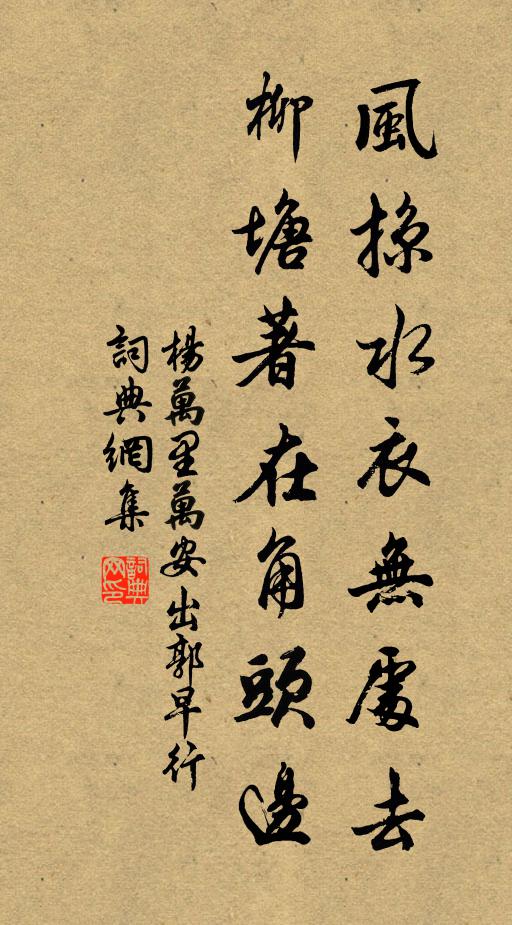 風掠水衣無處去
柳塘著在角頭邊
楊萬里萬安出郭早行
詞典網集
詞典網印